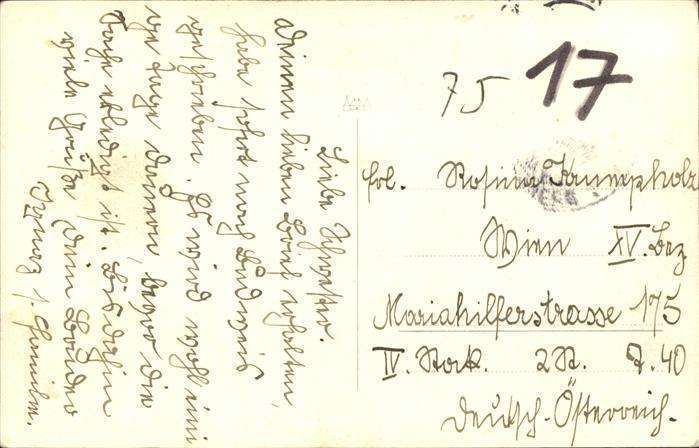 Liebe Schwester.
Deinen lieben Brief erhalten,
habe sofort nach Budweis
geschrieben. Es wird wohl eini
ge Tage dauern, bevor die
Sache erledigt ist. Bis dahin
viele Grüße Dein Bruder
Ignaz
75 17
Frl. Rosina
Wien XV. Bez
Mariahilferstrasse 175
IV. Stock. 2 St. T. 40
Deutsch-Österreich.